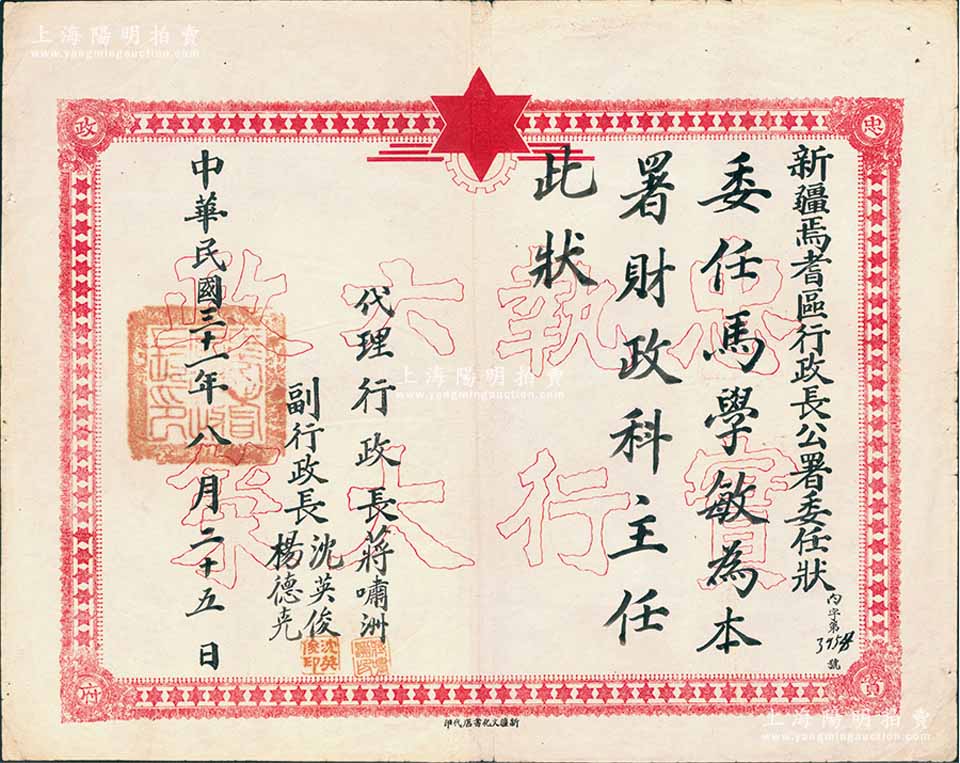 上海陽明拍賣
www.yangmingauction.com
忠
實
政
府
新疆焉耆區行政長公署委任狀
內字第3954號
委任馬學敏為本
署財政科主任
此狀
代理行政長蔣嘯洲
副行政長沈英俊
楊德堯
沈英俊印
中華民國三十一年八月二十五日
忠實
執行
六大
政策
新疆文化書店代印
上海陽明拍賣
www.yangmingauction.com
上海陽明拍賣
www.yangmingauction.com